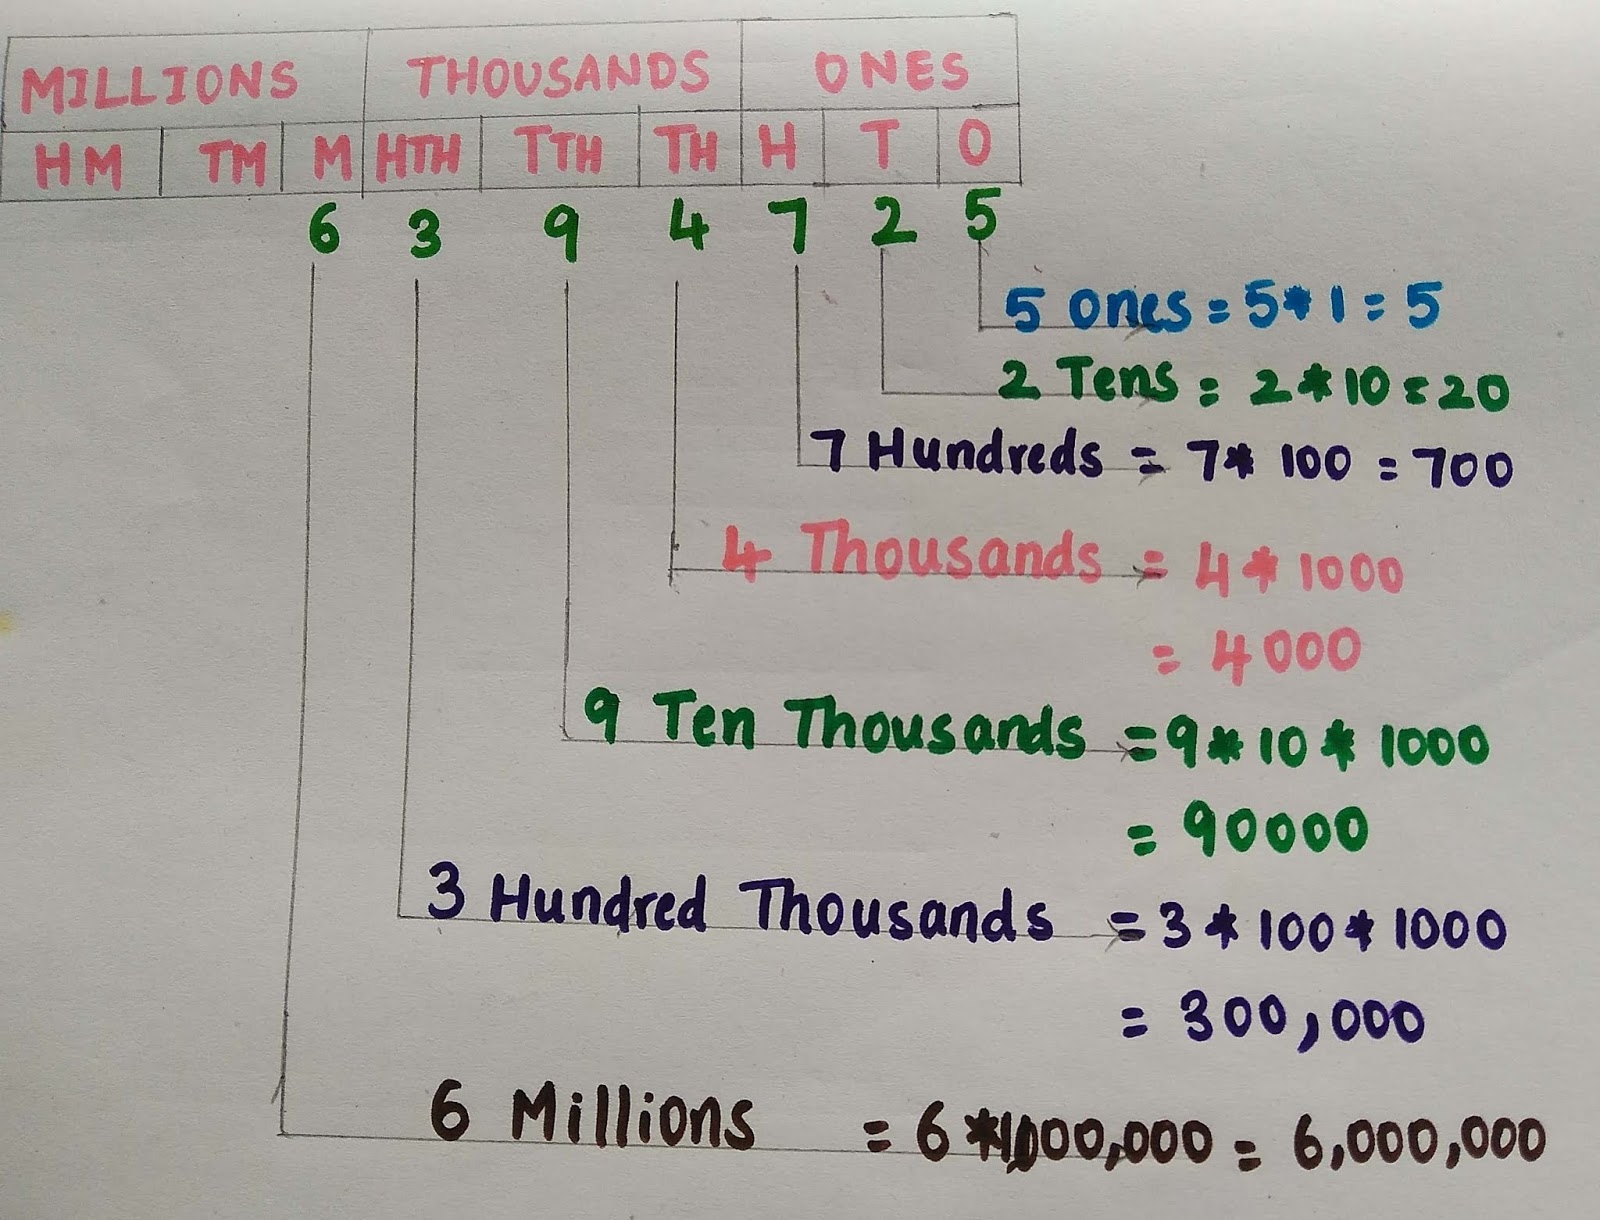 MILLIONS THOUSANDS ONES
HM TM M HTH TTH TH H T O
6 3 9 4 7 2 5
5 Ones = 5*1 = 5
2 Tens = 2*10 = 20
7 Hundreds = 7* 100 = 700
4 Thousands = 4*1000
= 4000
9 Ten Thousands = 9*10*1000
= 90000
3 Hundred Thousands = 3*100*1000
= 300,000
6 Millions = 6*1,000,000 = 6,000,000